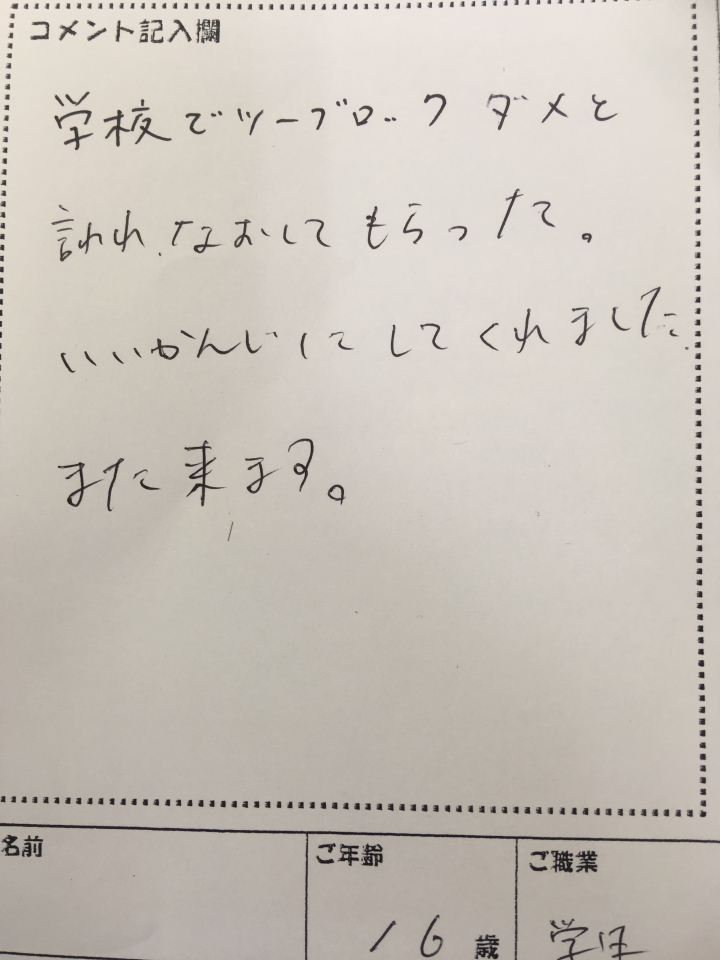 コメント記入欄
学校でツーブロック ダメと
言われ、なおしてもらった。
いいかんじにしてくれました。
また来ます。
名前
ご年齢
ご職業
16 歳
学生